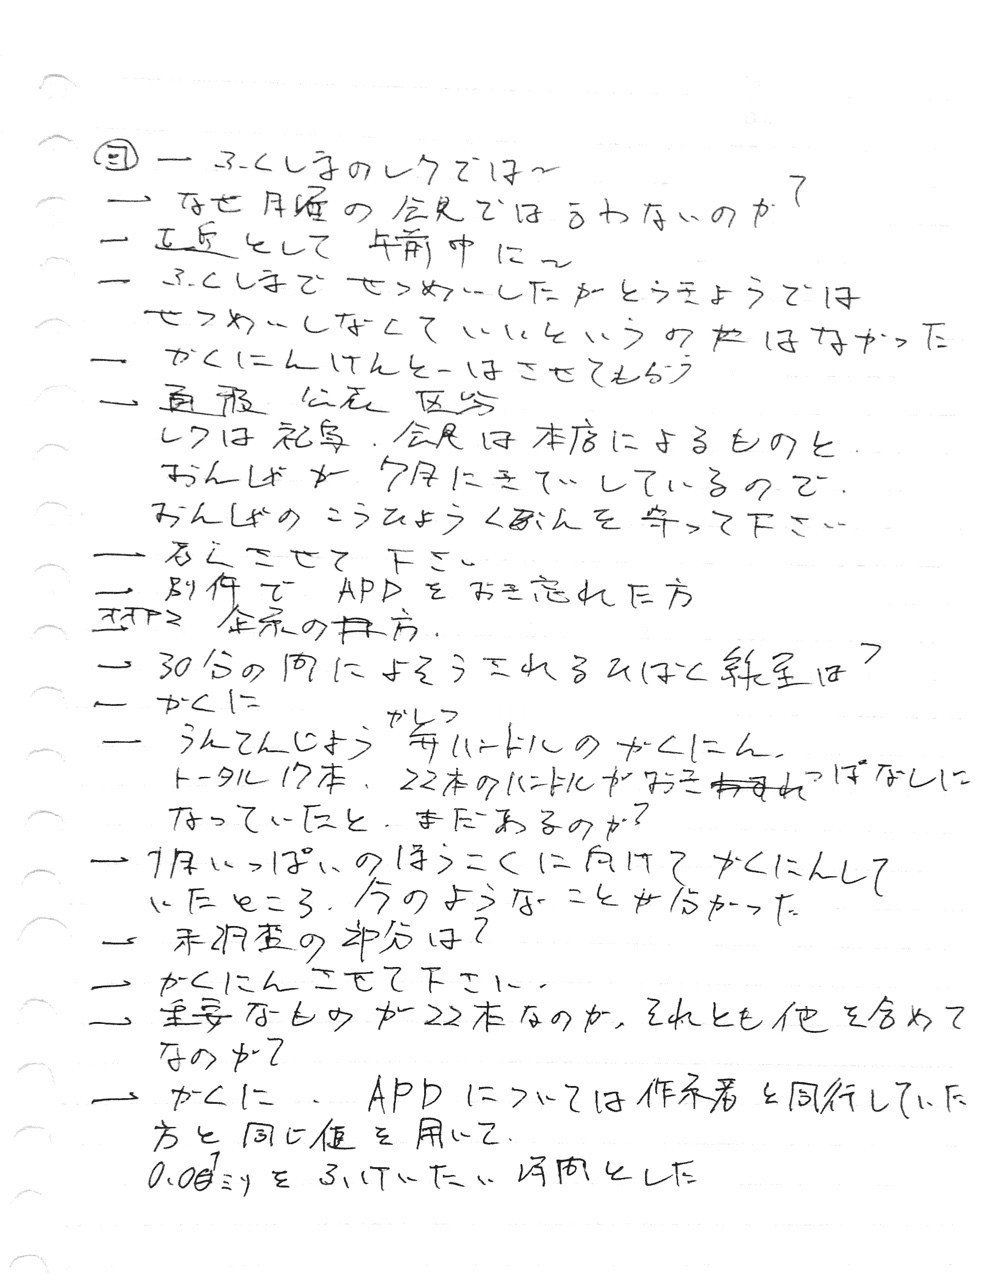 ー ふくしまのレクでは〜
ー なぜ 月曜の会見では言わないのか?
ー として 午前中に〜
ー ふくしまで せつめいしたがとうきょうでは
せつめいしなくていいというの はなかった
ー かくにんけんとーはさせてもらう
ー 公表 区分
レクは 、会見は本店によるものと
おんしゃが 7月にきていしているので、
おんしゃのこうひょうくぶんを守って下さい
ー させて下さい
ー 別件で APDをおき忘れた方
企系の 方、
ー 30分の間によそうされるひばく線量は?
ー かくに
ー うんてんじょう かしつ 弁ハンドルのかくにん、
トータル17本、22本のハンドルが っぱなしに
なっていたと、まだあるのか?
ー 1月いっぱいのほうこくに向けてかくにんして
いたところ、今のようなことが分かった
ー 未調査の部分は?
ー かくにんさせて下さい、
ー 重要なものが22本なのか、それとも他を含めて
なのか?
ー かくに、APDについては作業者と同行していた
方と同じ値を用いて、
ミリを ふいけいたい 時間とした